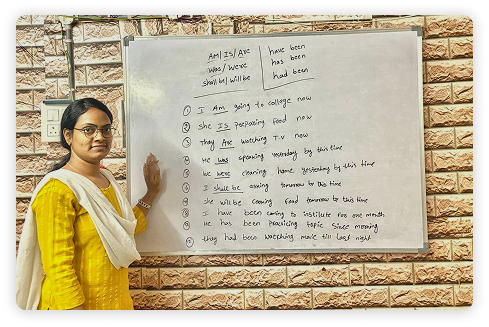 Am/Is/Are have been
was/were has been
shall be/will be had been
① I Am going to college now
② She Is preparing food now
③ They Are watching T.V now
④ He was speaking yesterday by this time
⑤ we were cleaning home yesterday by this time
⑥ I shall be asking tomorrow to this time
⑦ She will be cooking food tomorrow to this time
⑧ I have been coming to institute for one month
⑨ He has been practicing topic since morning
⑩ They had been watching movie till last night